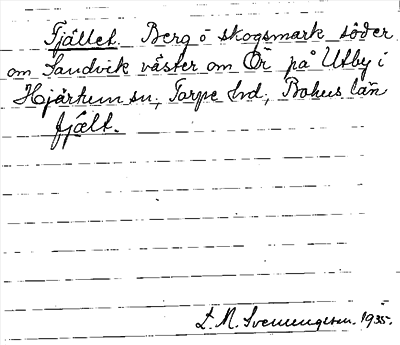 Fjället. Berg o skogsmark söder
om Sandvik väster om Ör på Utby i
Hjärtum sn, Torpe hd, Bohus län
fjælt.
L. M. Svenungsson. 1935.